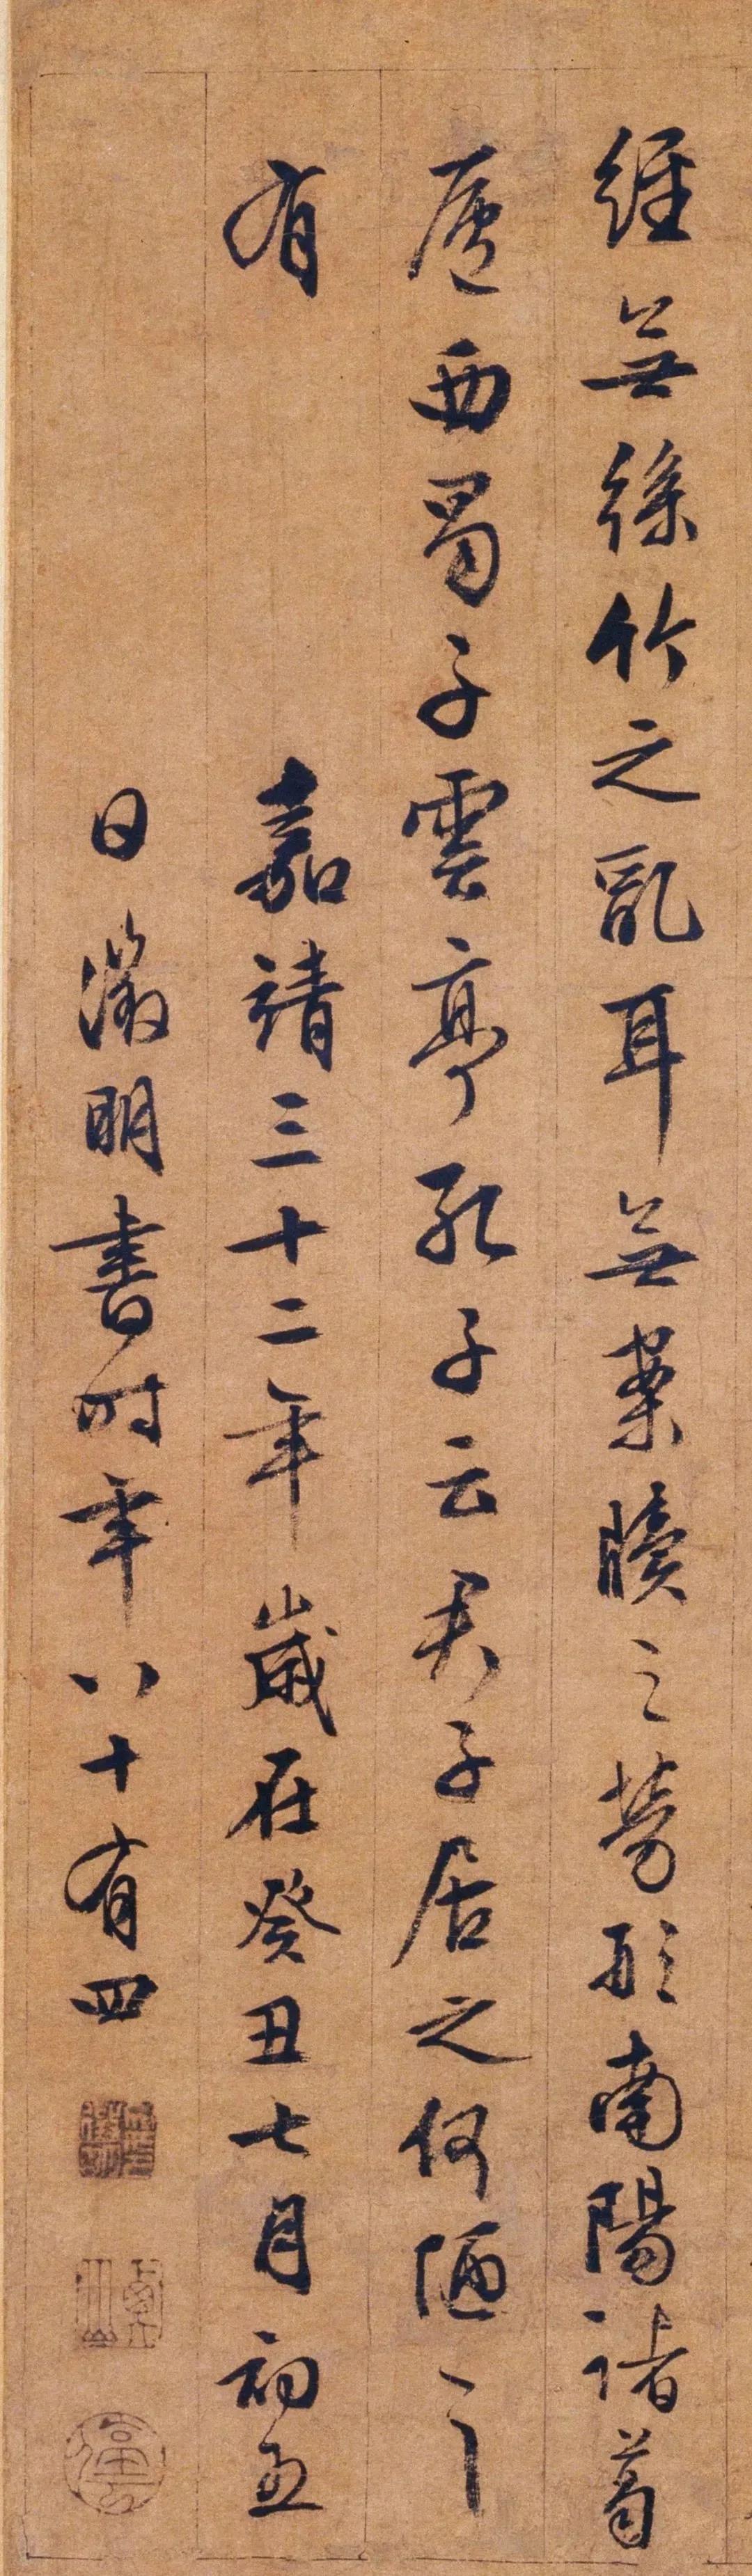 經無絲竹之亂耳無案牘之勞形南陽諸葛
廬西蜀子雲亭孔子云君子居之何陋之
有 嘉靖三十二年歲在癸丑七月初五
日徵明書時年八十有四